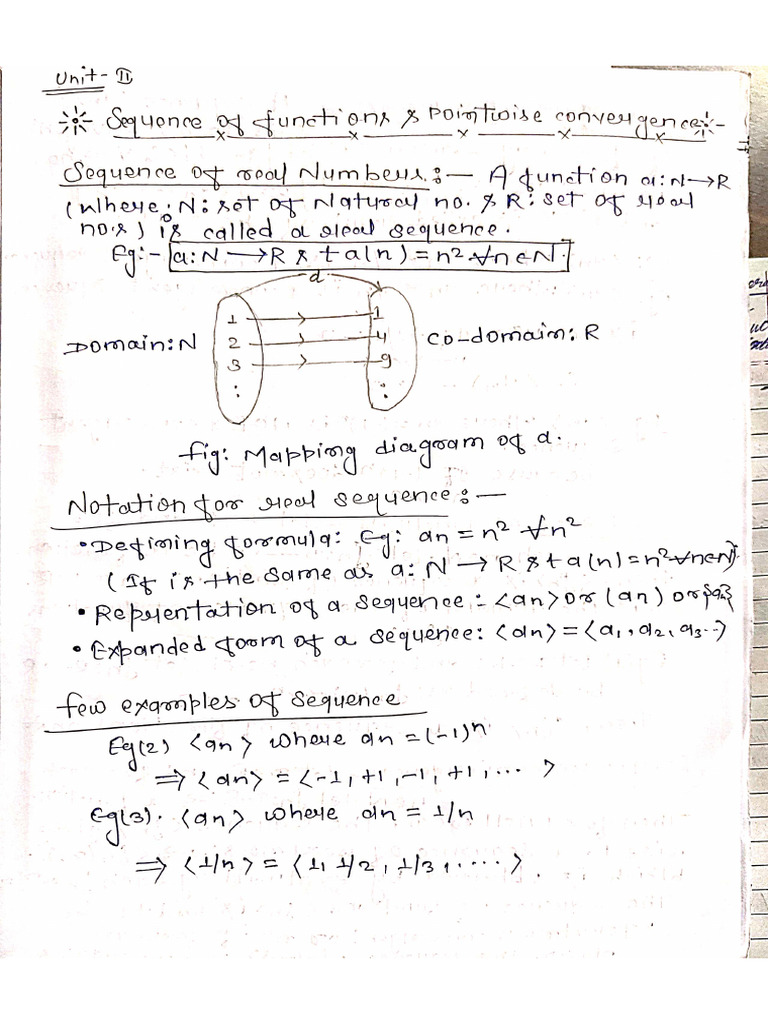 Unit - II
Sequence of functions & pointwise convergence
Sequence of real Numbers :— A function a: N → R
(Where, N: set of Natural no. & R: set of real
no.s) is called a real sequence.
Eg:- a: N → R s t a(n) = n² ∀ n ∈ N.
a
Domain: N
1 → 1
2 → 4
3 → 9
⋮ ⋮
Co-domain: R
fig: Mapping diagram of a.
Notation for real sequence :—
• Defining formula: Eg: an = n² ∀ n²
(It is the same as a: N → R s t a(n) = n² ∀ n ∈ N).
• Reprientation of a sequence: <an> or (an) or {an}
• Expanded form of a sequence: <an> = <a₁, a₂, a₃..>
few examples of sequence
Eg(2) <an> where an = (-1)ⁿ
⇒ <an> = <-1, +1, -1, +1, ... >
Eg(3). <an> where an = 1/n
⇒ <1/n> = <1, 1/2, 1/3, .....>.